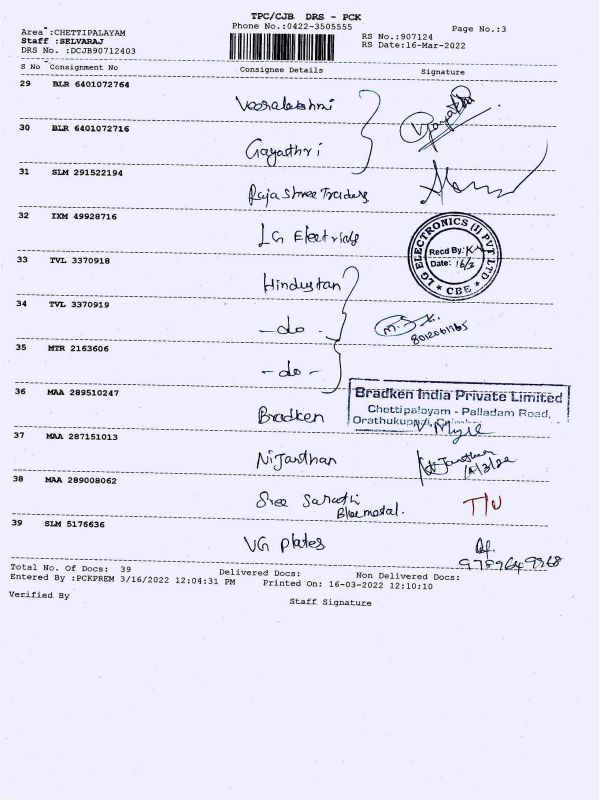 TPC/CJB DRS - PCK
Area :CHETTIPALAYAM Phone No.:0422-3505555 Page No.:3
Staff :SELVARAJ RS No.:907124
DRS No. :DCJB90712403 RS Date:16-Mar-2022
S No Consignment No Consignee Details Signature
29 BLR 6401072764
Veeralakshmi
30 BLR 6401072716
Gayathri
31 SLM 291522194
Raja Shree Traders
32 IXM 49928716
LG Electricals
LG ELECTRONICS (I) PVT LTD
Recd By:
Date: 16/3
* CBE *
33 TVL 3370918
Hindustan
34 TVL 3370919
- do -
8012061165
35 MTR 2163606
- do -
36 MAA 289510247
Bradken
Bradken India Private Limited
Chettipalayam - Palladam Road,
Orathukuppai,
37 MAA 287151013
Nijanthan
38 MAA 289008062
Sree Sarathi
39 SLM 5176636
VG Plates
9789649968
Total No. Of Docs: 39 Delivered Docs: Non Delivered Docs:
Entered By :PCKPREM 3/16/2022 12:04:31 PM Printed On: 16-03-2022 12:10:10
Verified By Staff Signature